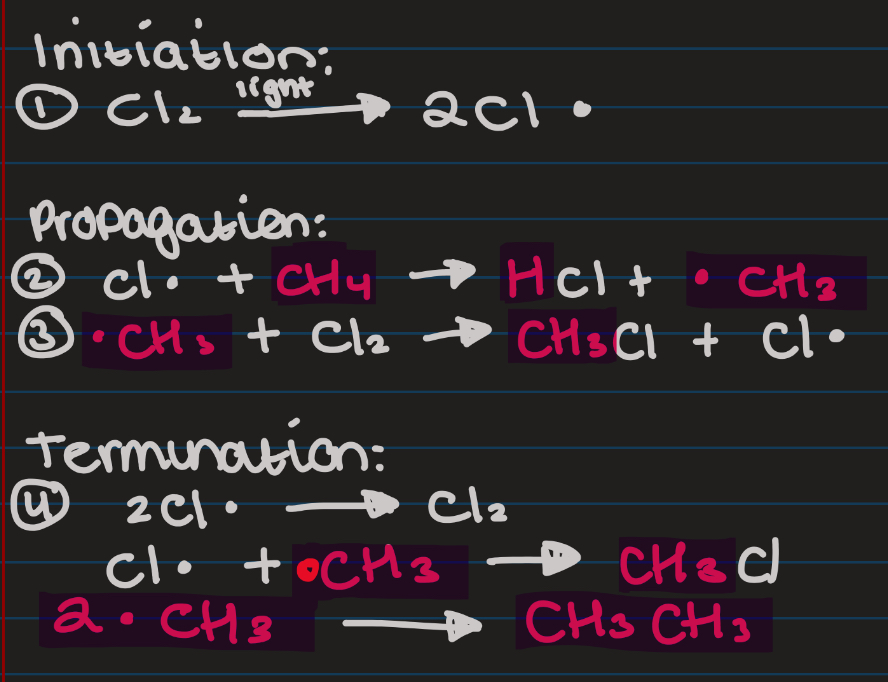 Initiation:
① Cl₂ light → 2Cl •
Propagation:
② Cl• + CH₄ → HCl + • CH₃
③ •CH₃ + Cl₂ → CH₃Cl + Cl•
Termination:
④ 2Cl• → Cl₂
Cl• + •CH₃ → CH₃Cl
2 • CH₃ → CH₃CH₃